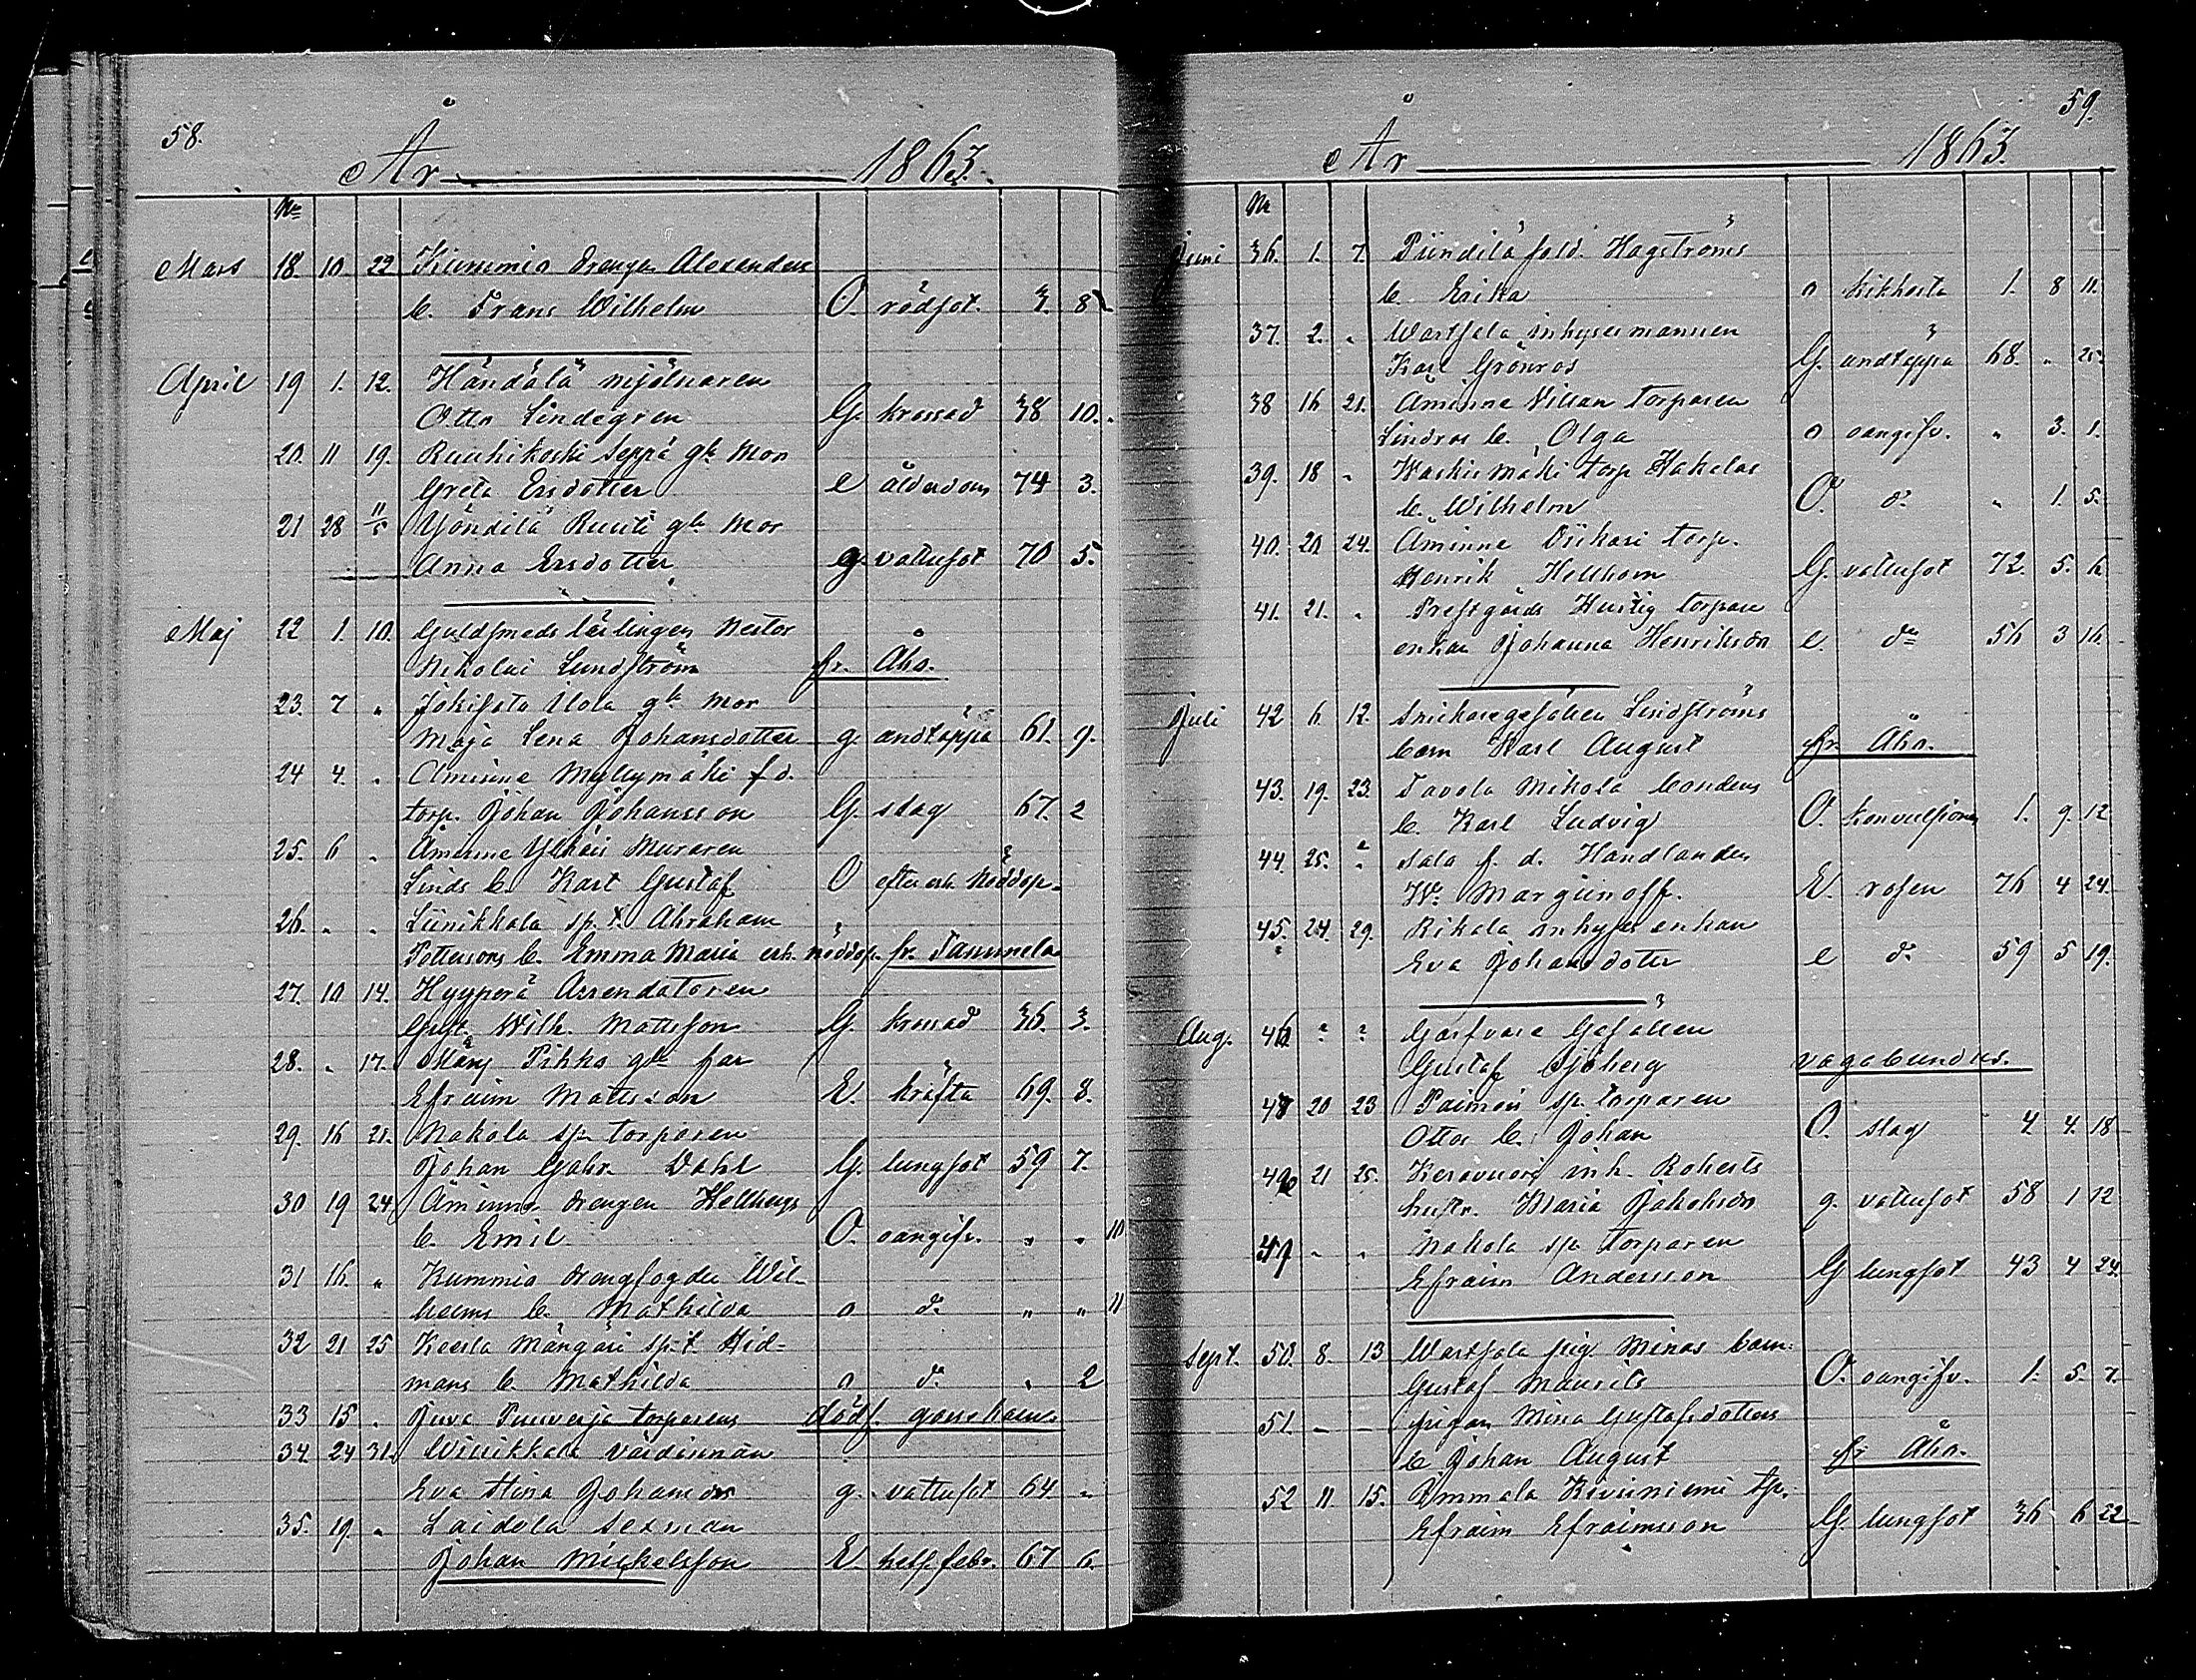 58.
År 1863.
No
Mars 18. 10 22 Kummio drengen Alexanders
b. Frans Wilhelm O. rödsot. 3. 8
April 19 1. 12. Händälä mjölnaren
Otto Lindegren G. krossad 38 10.
20. 11 19. Ruuhikoski Seppä gle Mor
Greta Ersdotter e ålderdom 74 3.
21 28 11/5 Yöndilä Ruuti gle Mor
Anna Ersdotter g. vattusot 70 5.
Maj 22 1. 10. Guldsmeds lärlingen Nestor
Nikolai Lundström fr. Åbo.
23. 7 " Jokisata Uola gle mor
Maja Lena Johansdotter g. andtäppa 61. 9.
24 4. " Åminne Myllymäki f d.
torp. Johan Johansson G. slag 67. 2
25. 6 " Åminne Muraren
Linds b. Karl Gustaf O efter erh. nöddop.
26. " " Liinikkala sp.t. Abraham
Pettersons b. Emma Maria erh. nöddop. fr. Tammela
27. 10 14. Hyyperä Arrendatoren
Gust. Wilh. Mattsson G. krossad 36. 3.
28. " 17. Märy Pikka gle far
Efraim Mattsson E. kräfta 69. 8.
29. 16 21. Nakola sp. torparen
Johan Gabr. Dahl G. lungsot 59 7.
30 19 24 Åminne drengen Hellbergs
b. Emil O. oangifv. " " 10
31 16. " Kummio drengfogden Wil-
helms b. Mathilda o d:o " " 11
32 21 25 Keesla Mångäri sp.t. Hid-
mans b. Mathilda o d:o " 2
33 15 " Juva Puuverja torparens dödf. gossebarn.
34. 24 31. Wiinikkala
Eva Stina Johansdr g. vattusot 64 "
35. 19. " Laidola Sexman
Johan Mickelsson E. heff. febr. 67 6.
59.
År 1863.
Nr
Juni 36. 1. 7. Piindilä sold. Hagströms
b. Erika o kikhosta 1. 8 11.
37. 2. " Wartsala inhysesmannen
Karl Grönros G. andtäppa 68. " 25.
38 16 21. Åminne Villan torparen
Lindros b. Olga o oangifv. " 3. 1.
39. 18 " Koskismäki torp. Kakolas
b. Wilhelm O. d:o " 1. 5.
40. 20 24. Åminne Torp.
Henrik Hellhom G. vattusot 72. 5. 6
41. 21. " Prestgårds Hurtig torpare
enkan Johanna Henriksdr e. d:o 56 3 16.
Juli 42 6. 12. Snickaregesällen Lindströms
barn Karl August fr. Åbo.
43. 19. 23. Tavola Mikola bondens
b. Karl Ludvig O. konvulsion 1. 9. 12
44 25. " Salo f. d. Handlanden
W. Margiinoff. E. rosen 76 4 24.
45. 24. 29. Rikala inhyses enkan
Eva Johansdoter e d:o 59 5 19.
Aug. 46 " " Garfvare Gesällen
Gustaf Sjöberg vagabundus.
47 20 23 Paimon sp. torparen
Ottos b. Johan O. slag 4. 4. 18
48 21 25. Keravuori inh. Roberts
hustr. Maria Jakobsdr g. vattusot 58 1 12
49 " " Nakola sp. torparen
Efraim Andersson G lungsot 43 4 24.
Sept. 50. 8. 13 Wartsala pig. Minas barn.
Gustaf Maurits O. oangifv. 1. 5. 7.
51. — — pigan Mina Gustafsdotters
b Johan August fr Åbo.
52 11. 15. Pimmala Kiviniemi sp.
Efraim Efraimsson G. lungsot 36 6 22